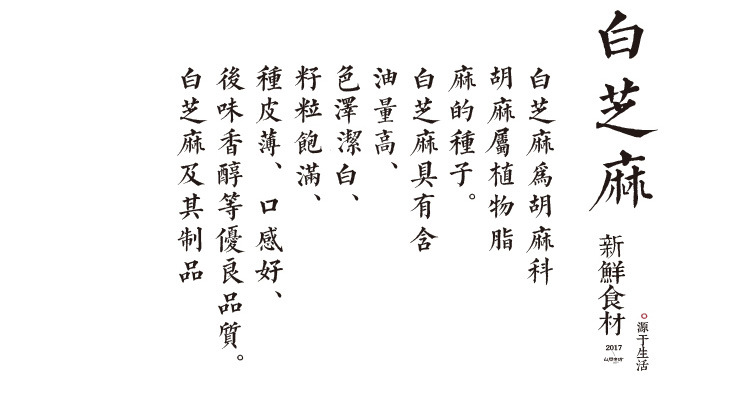 白芝麻
新鮮食材
2017
源于生活
白芝麻為胡麻科
胡麻屬植物脂
麻的種子。
白芝麻具有含
油量高、
色澤潔白、
籽粒飽滿、
種皮薄、口感好、
後味香醇等優良品質。
白芝麻及其制品